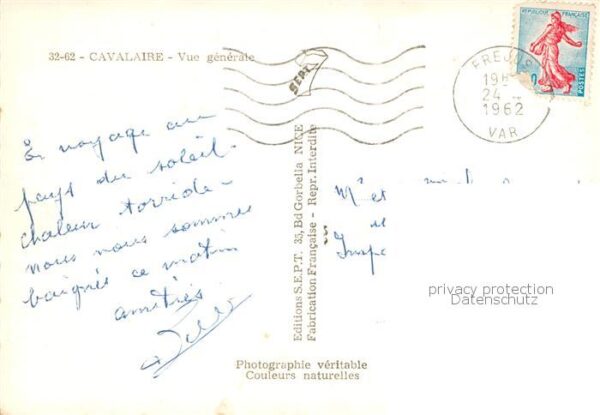 32-62 - CAVALAIRE - Vue générale
En voyage au
pays du soleil -
chaleur torride -
nous nous sommes
baignés ce matin
amitiés
SEPT
Editions S.E.P.T. 35, Bd Gorbella NICE
Fabrication Française - Repr. Interdite
REPUBLIQUE FRANÇAISE
POSTES
FREJUS
19H
24 -
1962
VAR
Mr et
et
privacy protection
Datenschutz
Photographie véritable
Couleurs naturelles